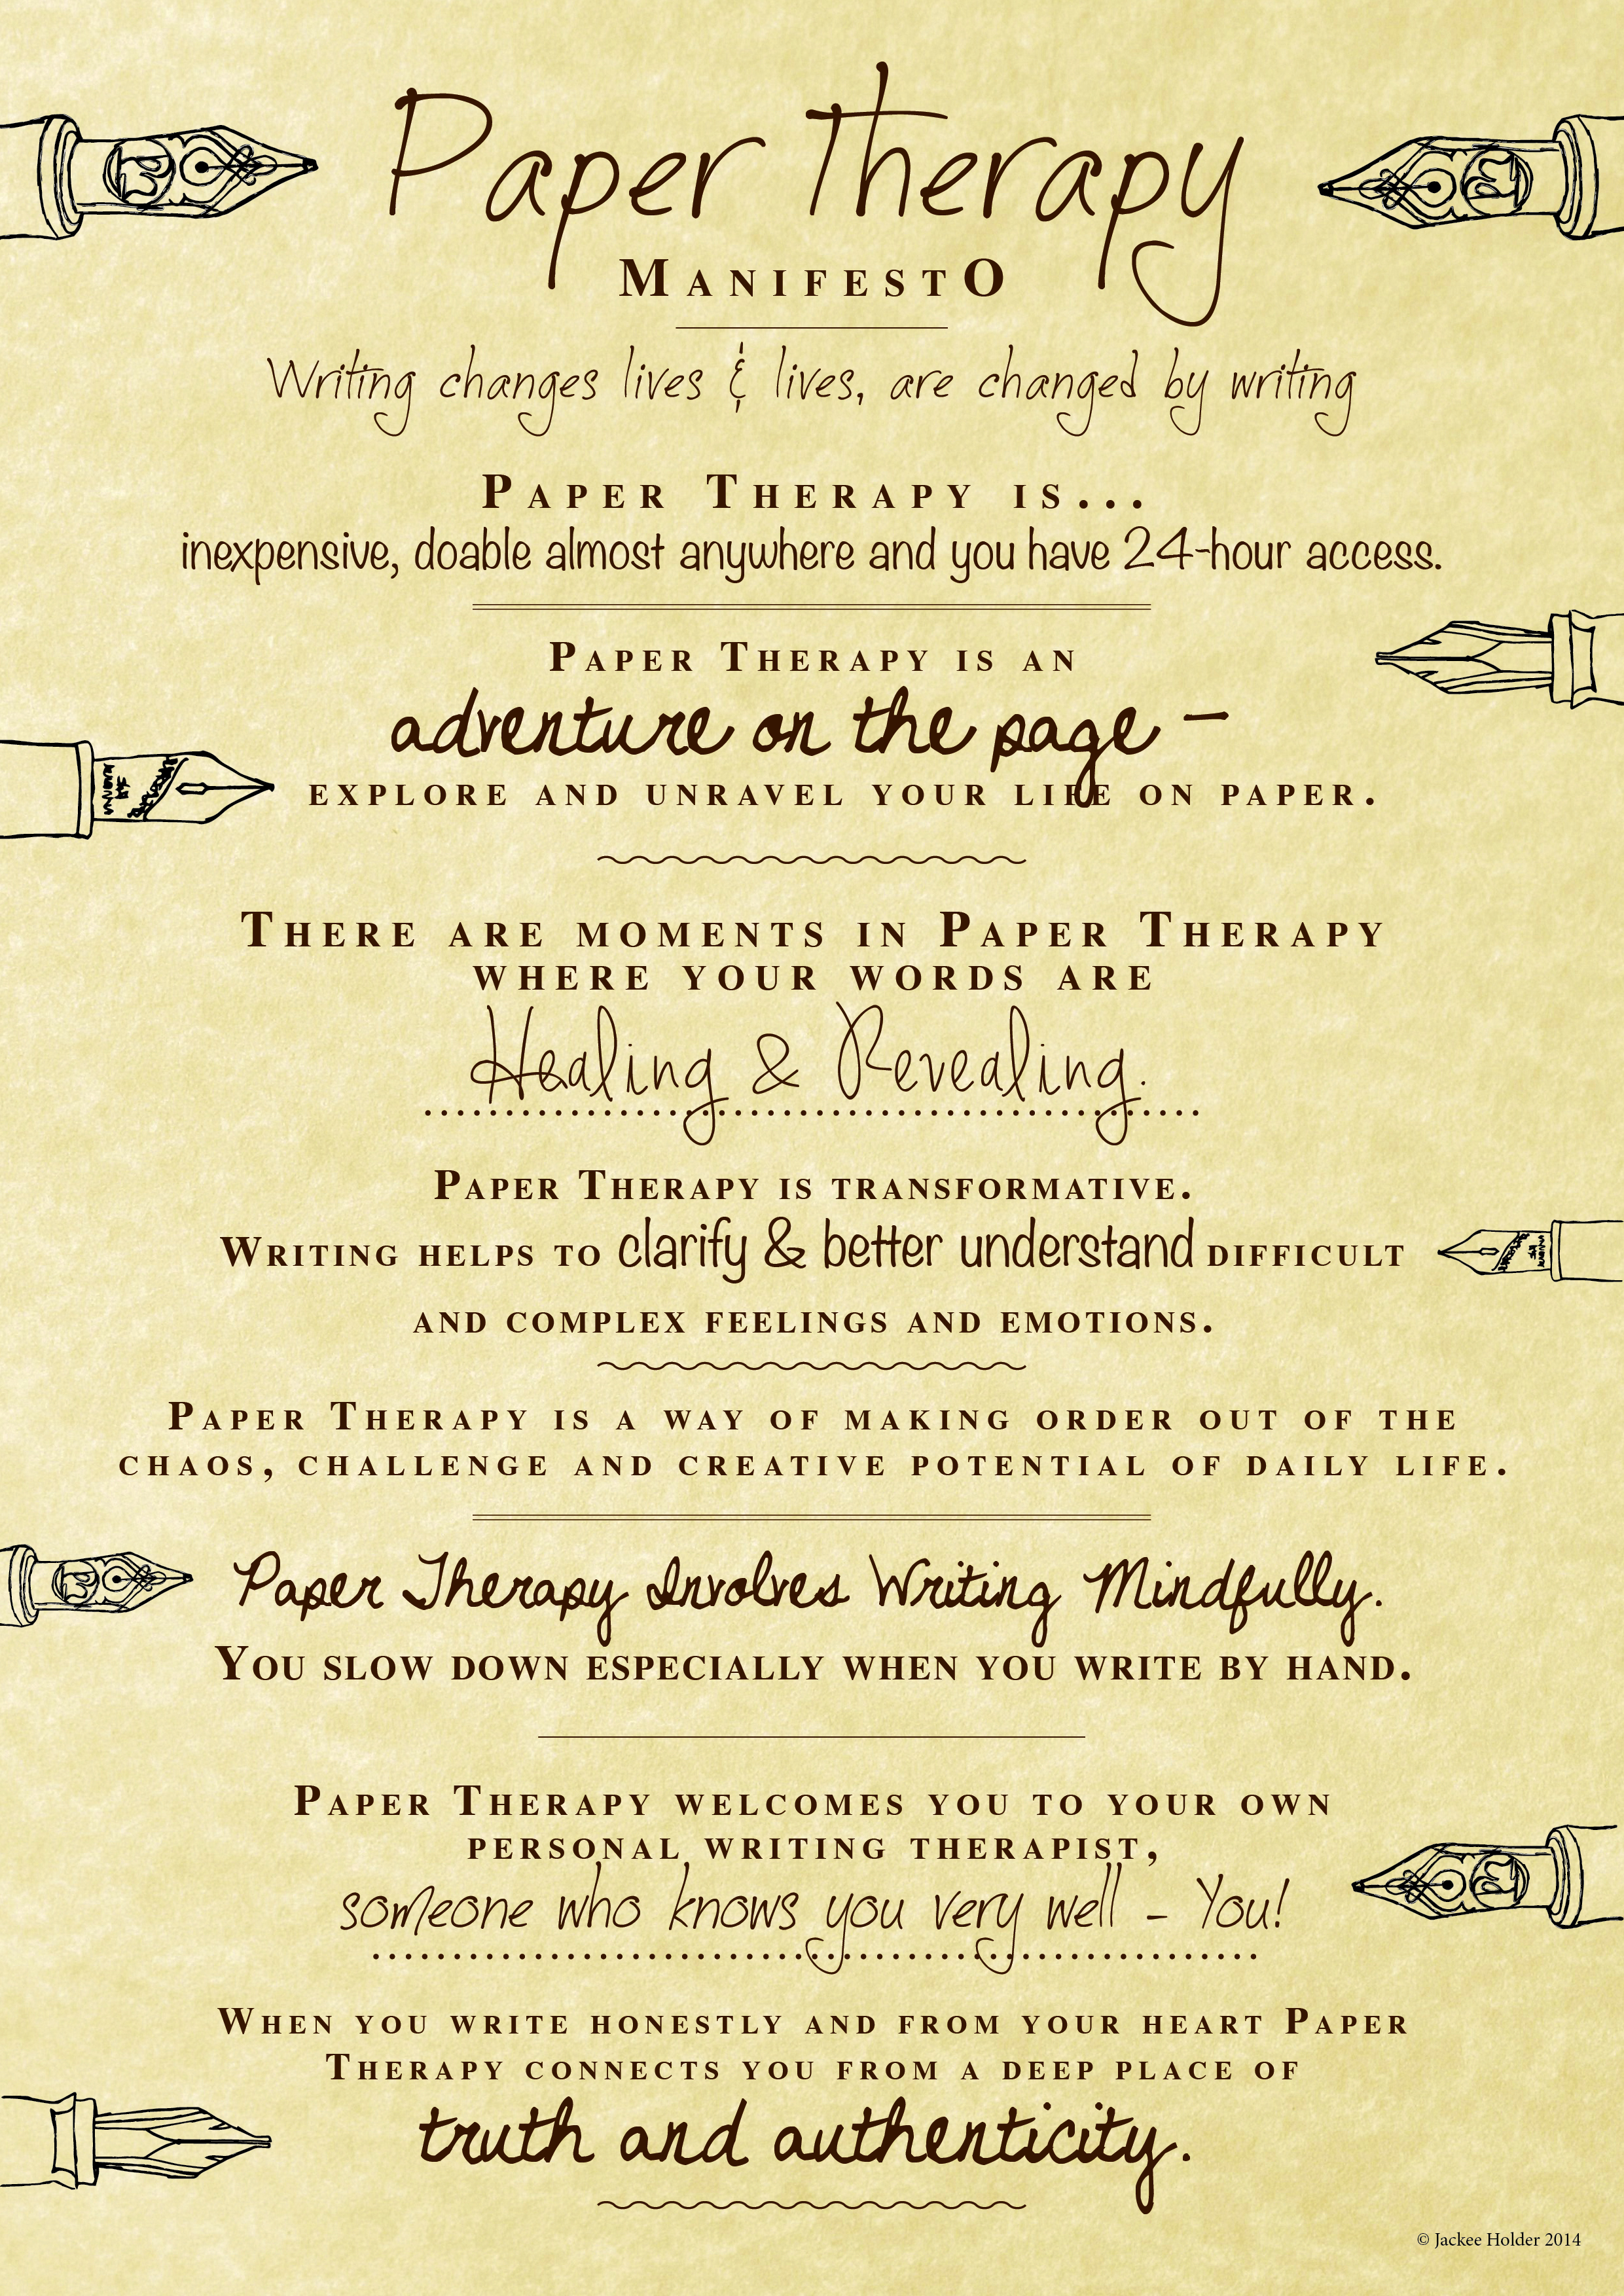 Paper Therapy
ManifestO
Writing changes lives & lives, are changed by writing
Paper Therapy is...
inexpensive, doable almost anywhere and you have 24-hour access.
Paper Therapy is an
adventure on the page –
explore and unravel your life on paper.
There are moments in Paper Therapy
where your words are
Healing & Revealing.
Paper Therapy is transformative.
Writing helps to clarify & better understand difficult
and complex feelings and emotions.
Paper Therapy is a way of making order out of the
chaos, challenge and creative potential of daily life.
Paper Therapy Involves Writing Mindfully.
You slow down especially when you write by hand.
Paper Therapy welcomes you to your own
personal writing therapist,
someone who knows you very well – You!
When you write honestly and from your heart Paper
Therapy connects you from a deep place of
truth and authenticity.
© Jackee Holder 2014